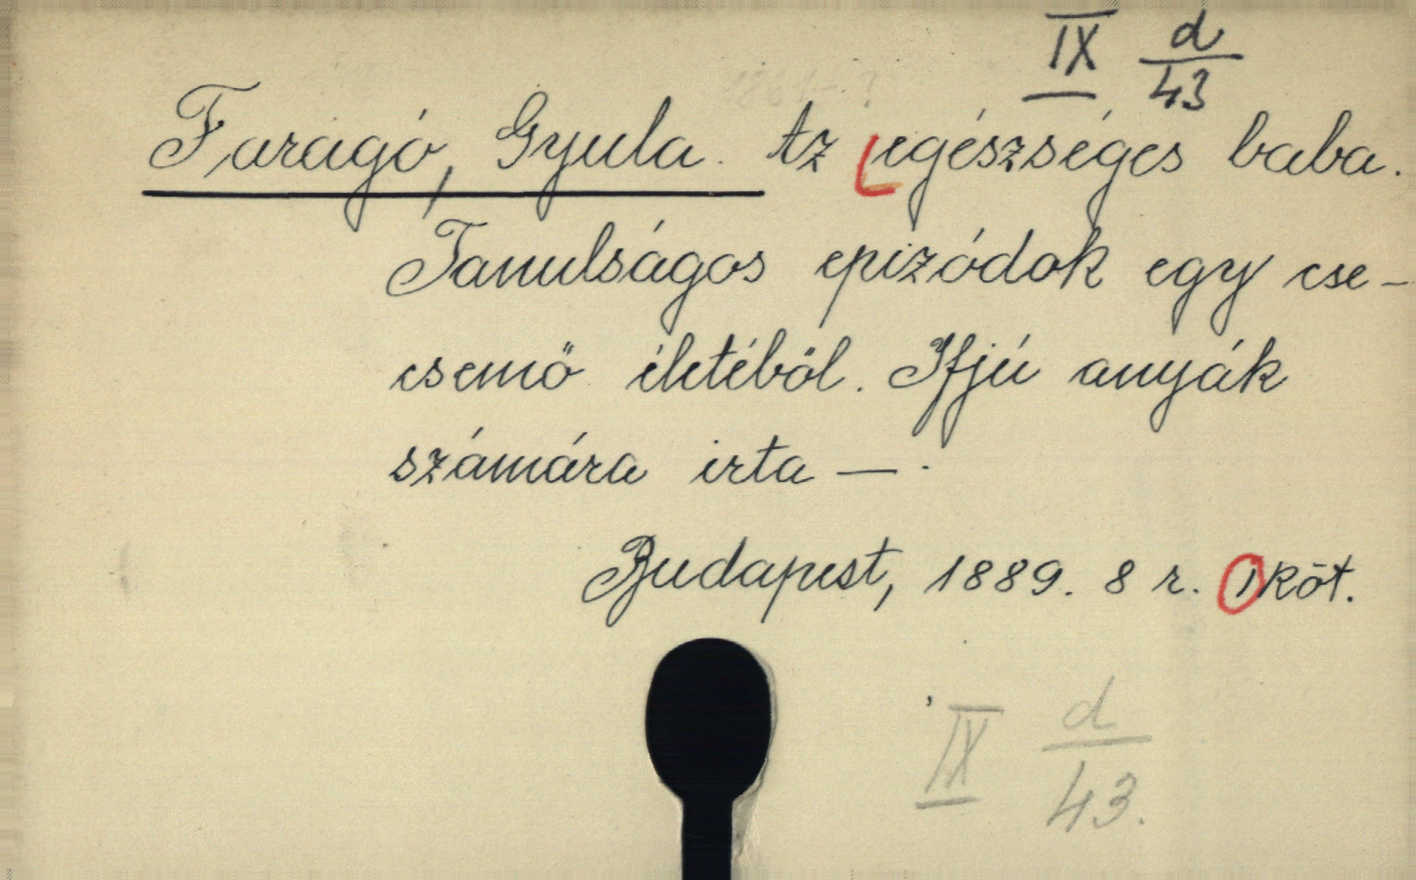 IX d/43
Faragó, Gyula. Az egészséges baba.
Tanulságos epizódok egy cse-
csemő életéből. Ifjú anyák
számára irta — .
Budapest, 1889. 8 r. 1 köt.
IX d/43.